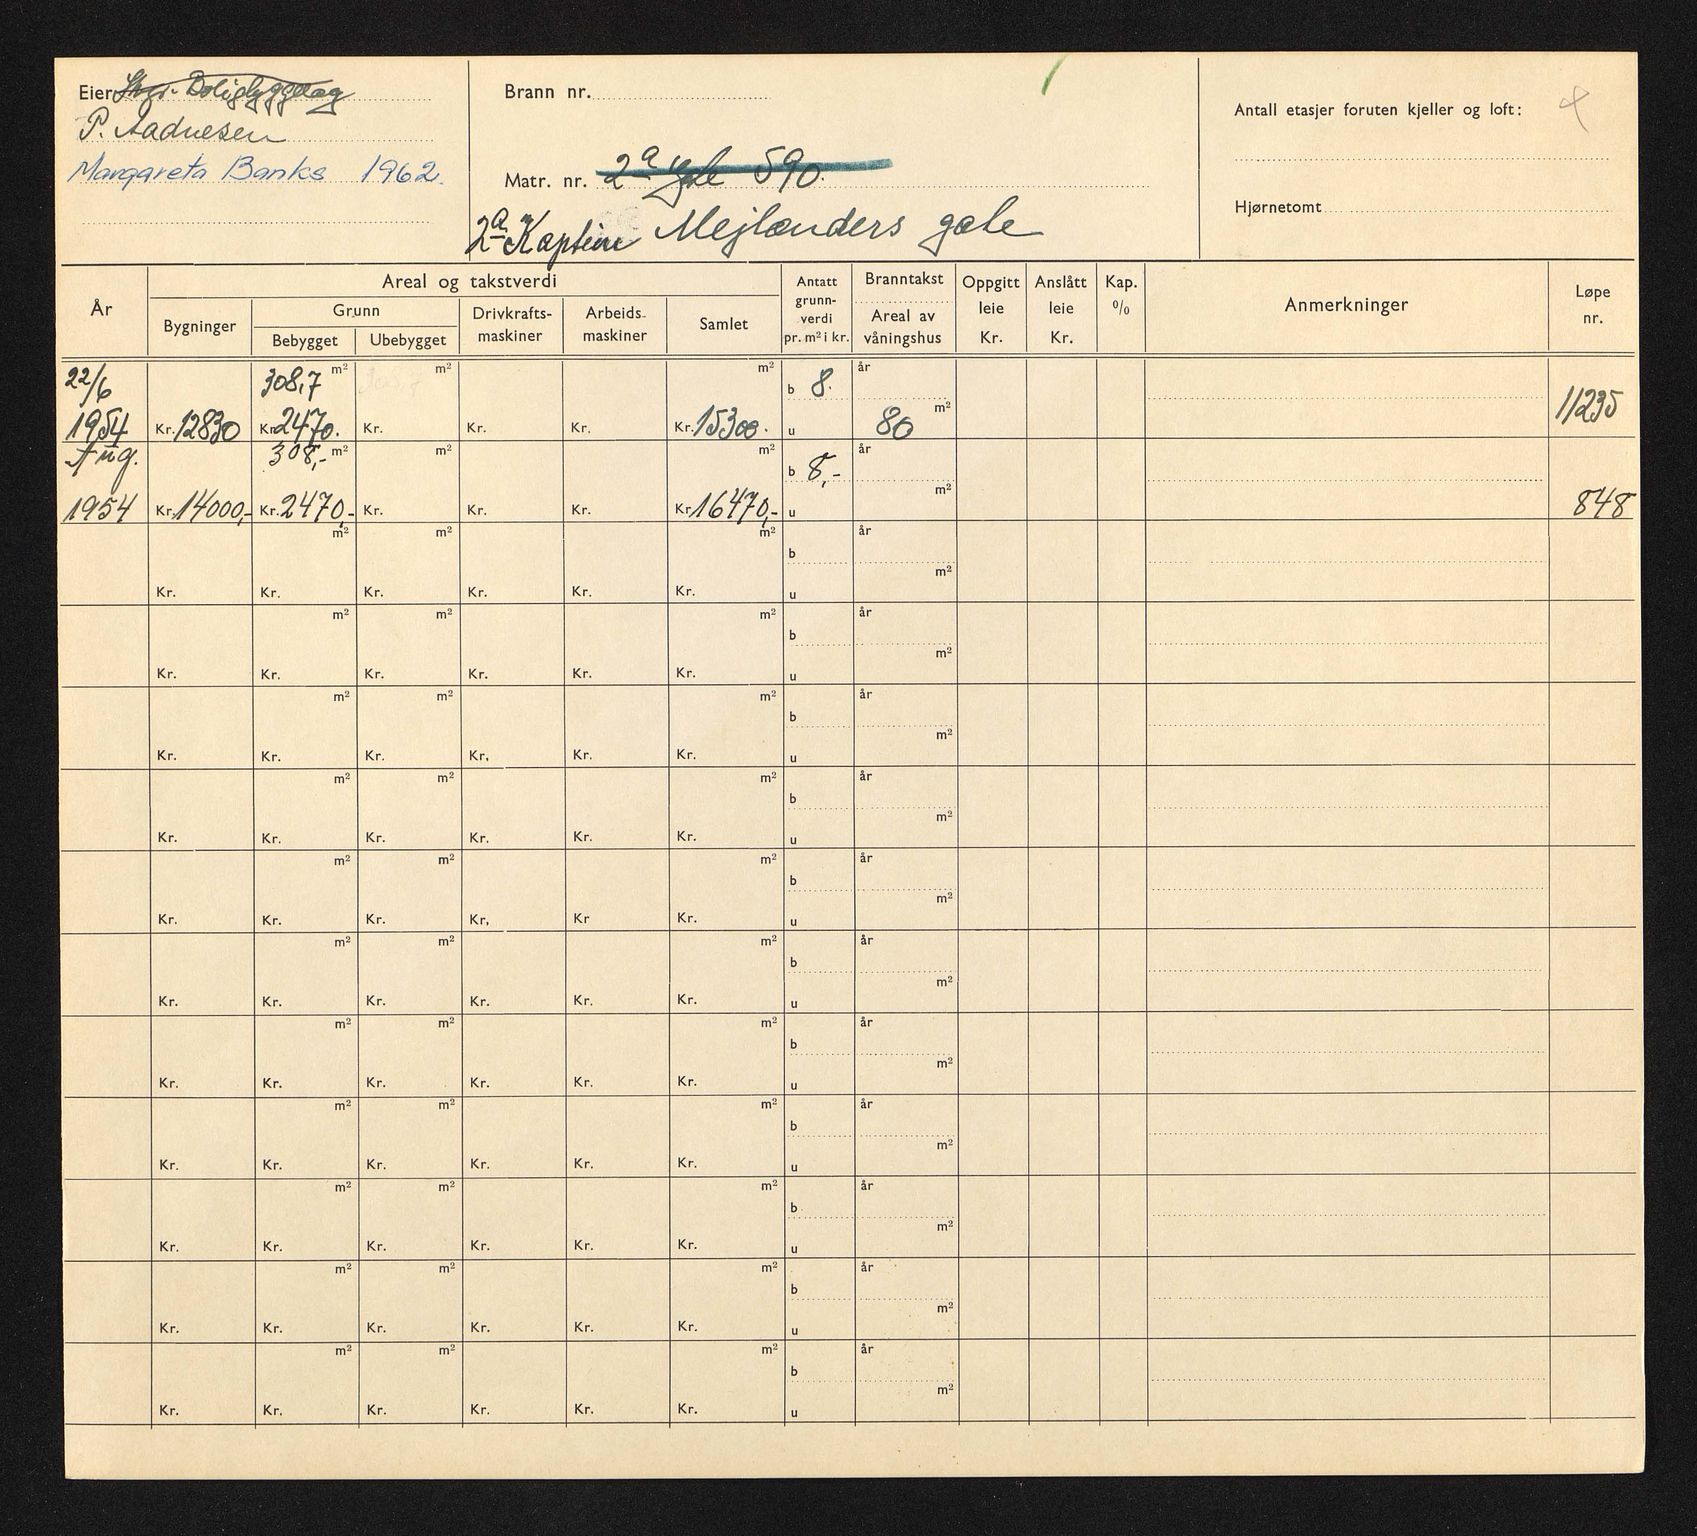 Eier Stvgr. Boligbyggelag
P. Aadnesen
Margareta Banks 1962.
Brann nr.
Matr. nr. 2a gate 590.
2a Kaptein Mejlænders gate
Antall etasjer foruten kjeller og loft:
Hjørnetomt
År
Areal og takstverdi
Bygninger
Grunn
Bebygget Ubebygget
Drivkrafts-
maskiner
Arbeids-
maskiner
Samlet
Antatt
grunn-
verdi
pr. m² i kr.
Branntakst
Areal av
våningshus
Oppgitt
leie
Kr.
Anslått
leie
Kr.
Kap.
%
Anmerkninger
Løpe
nr.
22/6 308,7 m² m² m² b 8. år
1954 Kr. 12830 Kr. 2470. Kr. Kr. Kr. Kr. 15300. u 80 m² 11235
Aug. 308,- m² m² m² b 8,- år
1954 Kr. 14000,- Kr. 2470,- Kr. Kr. Kr. Kr. 16470,- u m² 848
m² m² m² b år
Kr. Kr. Kr. Kr. Kr. Kr. u m²
m² m² m² b år
Kr. Kr. Kr. Kr. Kr. Kr. u m²
m² m² m² b år
Kr. Kr. Kr. Kr. Kr. Kr. u m²
m² m² m² b år
Kr. Kr. Kr. Kr. Kr. Kr. u m²
m² m² m² b år
Kr. Kr. Kr. Kr. Kr Kr. u m²
m² m² m² b år
Kr. Kr. Kr. Kr. Kr. Kr. u m²
m² m² m² b år
Kr. Kr. Kr. Kr. Kr. Kr. u m²
m² m² m² b år
Kr. Kr. Kr. Kr. Kr. Kr. u m²
m² m² m² b år
Kr. Kr. Kr. Kr. Kr. Kr. u m²
m² m² m² b år
Kr. Kr. Kr. Kr. Kr. Kr. u m²
m² m² m² b år
Kr. Kr. Kr. Kr. Kr. Kr. u m²